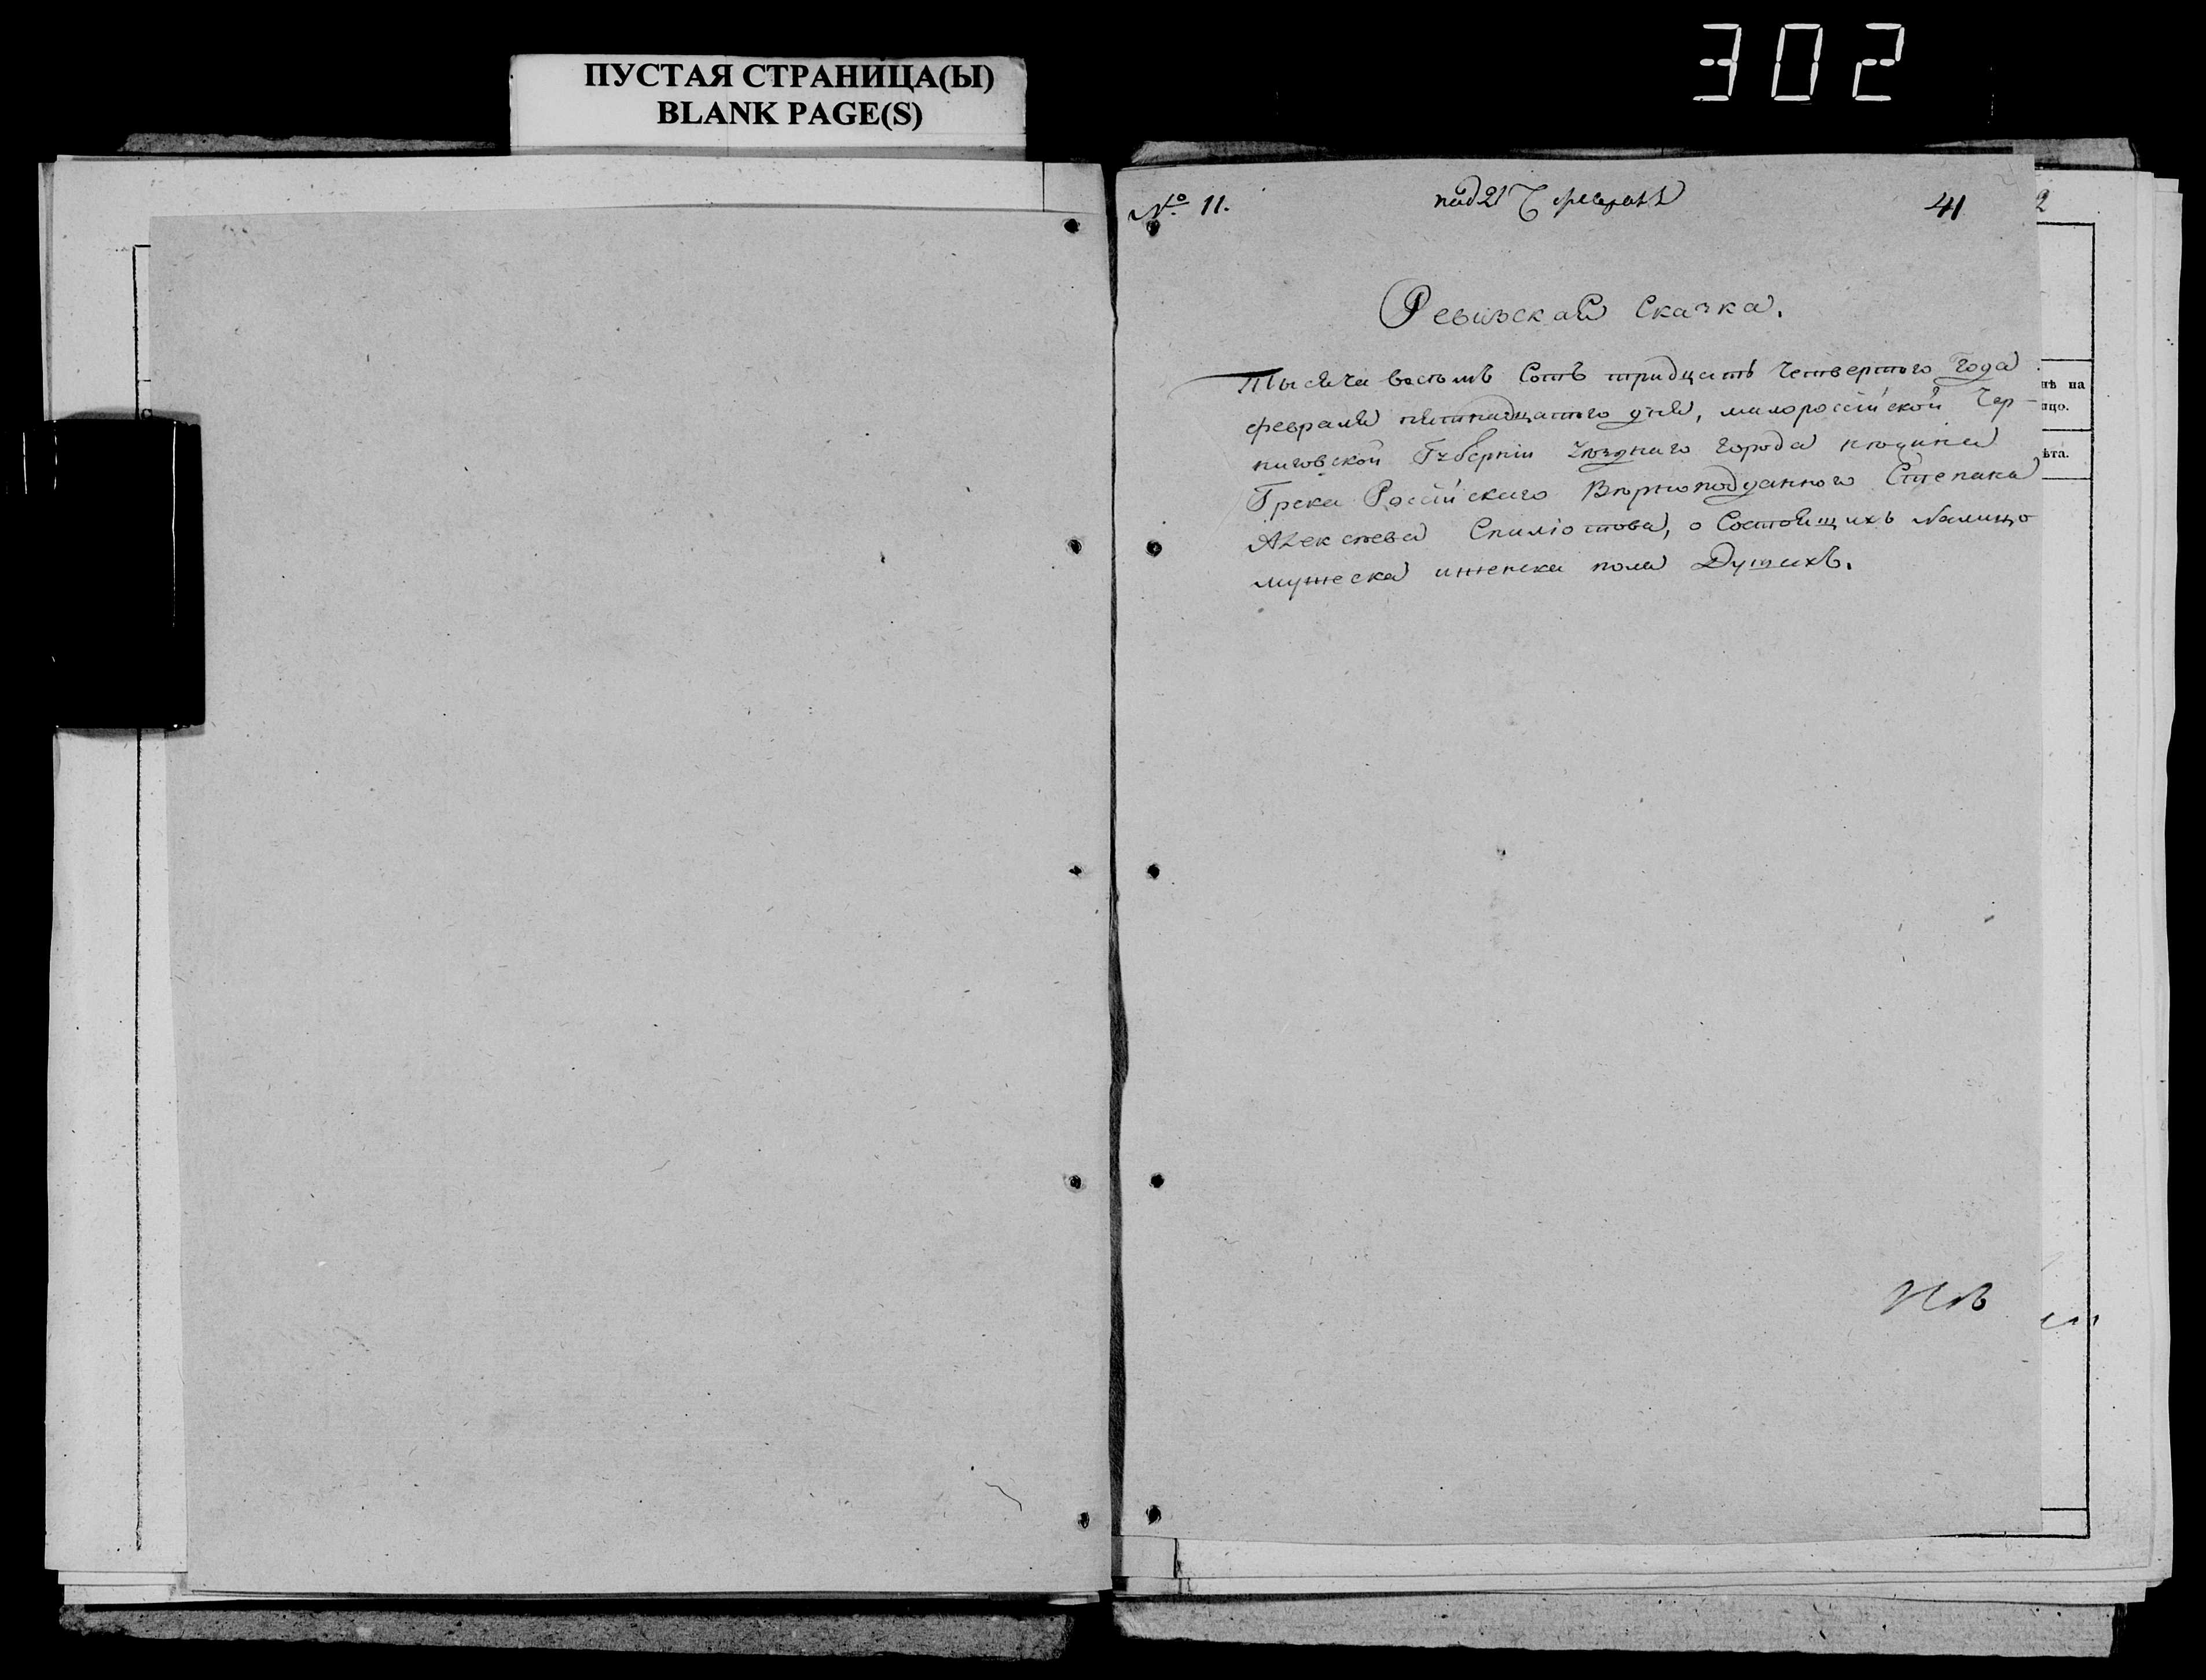 302
ПУСТАЯ СТРАНИЦА(Ы)
BLANK PAGE(S)
№ 11.
под 21 февраля
41
2
Ревизская Сказка.
Тысяча восьмъ Сотъ тридцать четвертого года
февраля пятнадцатого дня, малороссійской Чер-
ниговской Губерніи уезднаго города нѣжина
Грека Россійскаго Вѣрноподданного Степана
Алексѣева Спиліотова, о Состоящихъ налицо
мужеска иженска пола Душахъ.
нѣ на
ицо.
ѣта.